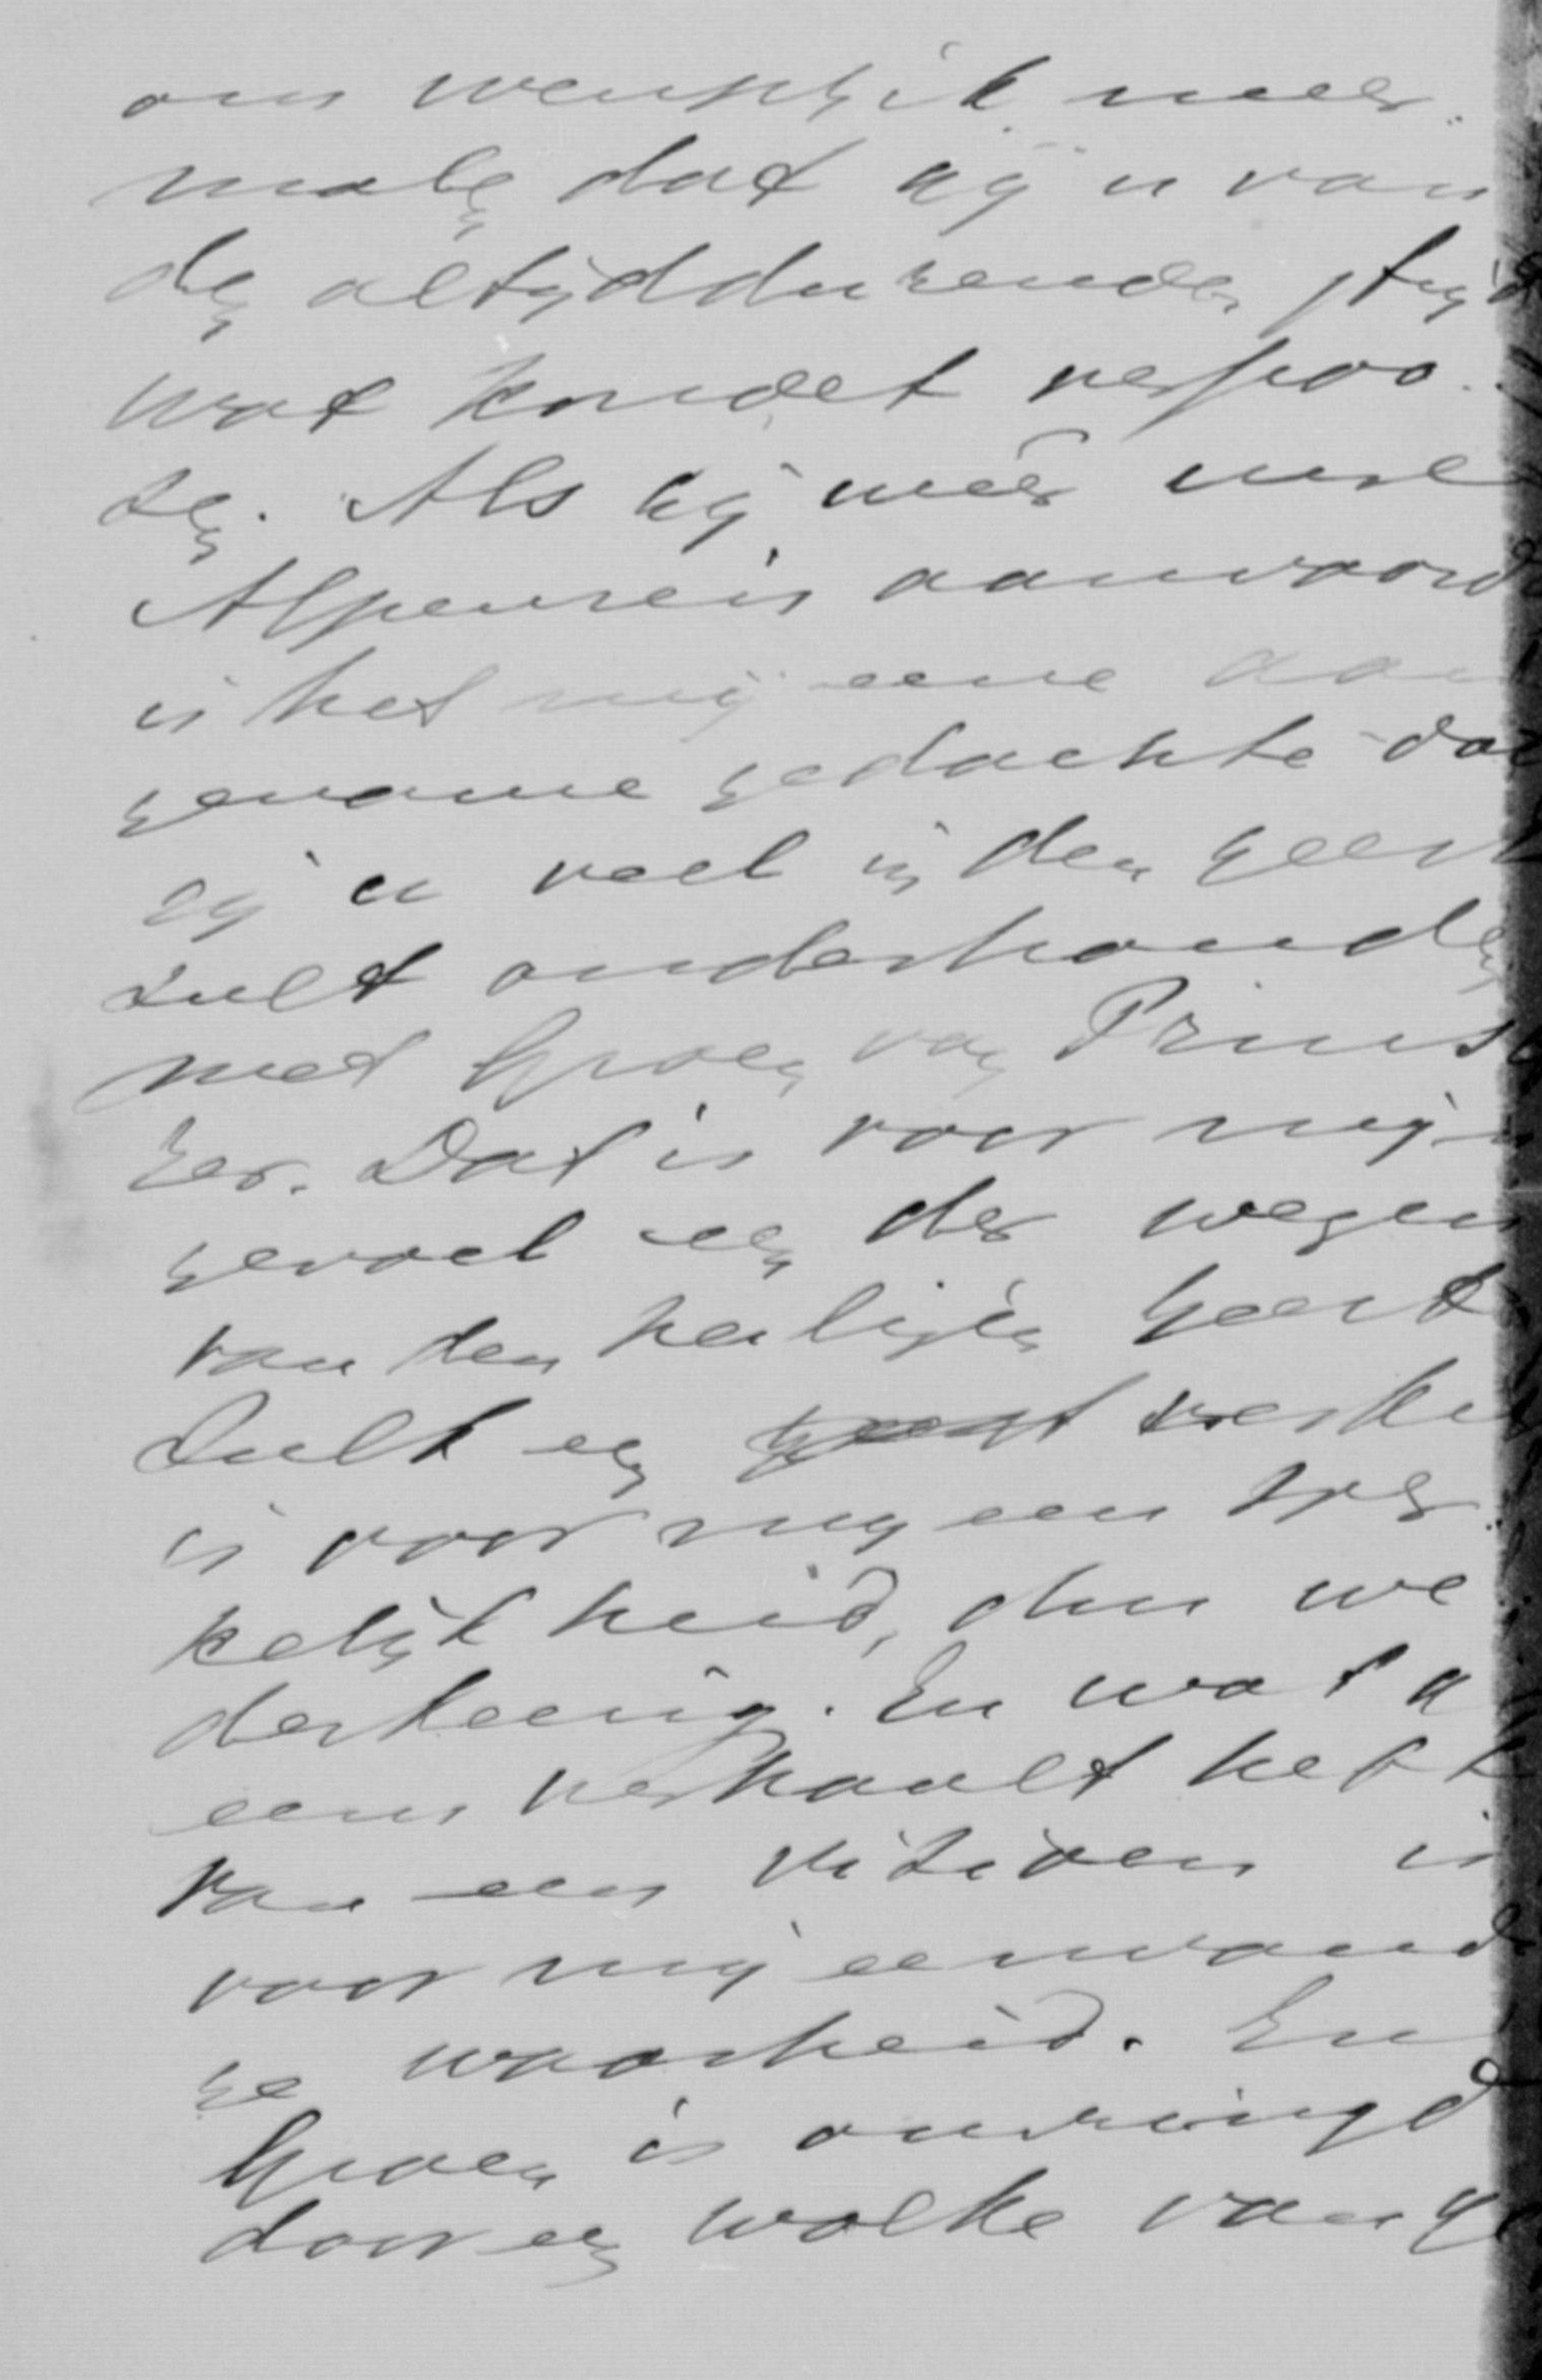 om wensch ik meer-
malen dat gij u van
den altijddurenden strijd
wat kondet verpoo-
zen. Als gij weer uwe
Alpenreis aanvaard
is het mij eene aan
gename gedachte dat
gij u veel in den geest
zult onderhouden
met Groen van Prinst
rer. Dat is voor mijn
gevoel een der wegen
van den heiligen Geest
Zulk een verke
is voor mij een wer-
kelijkheid, dus we
derkeerig. En wat g
eens verhaalt hebt
van een visioen is
voor mij eenvoudi
ge waarheid. En
Groen is omringd
door een wolke van ge